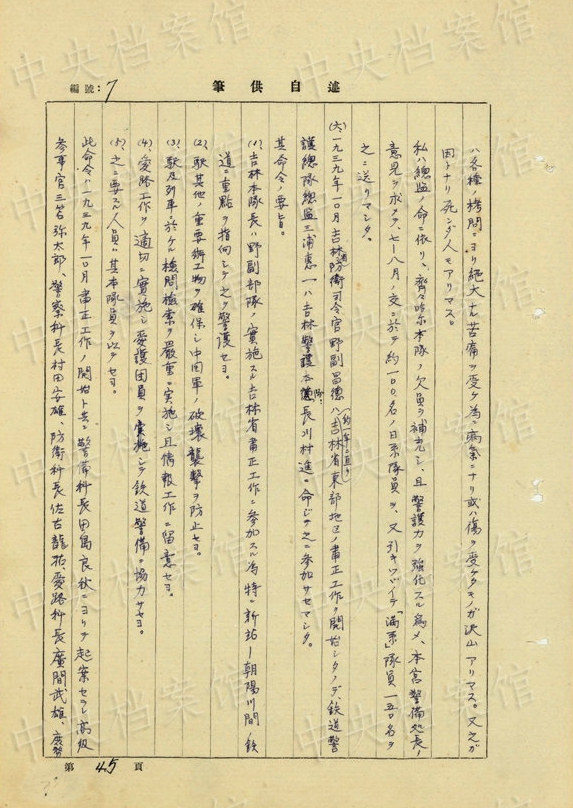 中央档案馆
編號：7
筆供自述
ハ各種ノ拷問ニヨリ絶大ナル苦痛ヲ受ケ為ニ病気ニナリ或ハ傷ヲ受ケタモノガ沢山アリマス。又之ガ
因トナリ死ンダ人モアリマス。
私ハ総監ノ命ニ依リ、齊々哈尓本隊ノ欠員ヲ補充シ、且警護力ヲ強化スル為メ、本宮警備処長ノ
意見ヲ求メテ、七—八月ノ交ニ於テ約一〇〇名ノ日系隊員ヲ、又引キツヾイテ「満系」隊員一五〇名ヲ
之ニ送リマシタ。
(六)一九三九年一〇月吉林防衛司令官野副昌德ハ(約一年ニ亘リ)吉林省東部地区ノ粛正工作ヲ開始シタノデ、鉄道警
護總隊総監三浦惠一ハ吉林警護本隊長川村進ニ命ジテ之ニ参加サセマシタ。
其命令ノ要旨。
(1)、吉林本隊長ハ野副部隊ノ実施スル吉林省粛正工作ニ参加スル為、特ニ新站—朝陽川間ノ鉄
道ニ重點ヲ指向シテ之ヲ警護セヨ。
(2)、駅其他ノ重要術工物ヲ確保シ中国軍ノ破壊襲撃ヲ防止セヨ。
(3)、駅及列車ニ於ケル檢問檢索ヲ嚴重ニ実施シ且情報工作ニ留意セヨ。
(4)、愛路工作ヲ適切ニ實施シ愛護団員ヲシテ鉄道警備ニ協力サセヨ。
(5)、之ニ要スル人員ハ其本隊員ヲ以テセヨ。
此命令ハ一九三九年一〇月粛正工作ノ開始ト共ニ警備科長田島良秋ニヨリテ起案セラレ高級
参事官三谷弥太郎、警察科長村田安雄、防衛科長佐古龍祐愛路科長廣間武雄、
第45頁